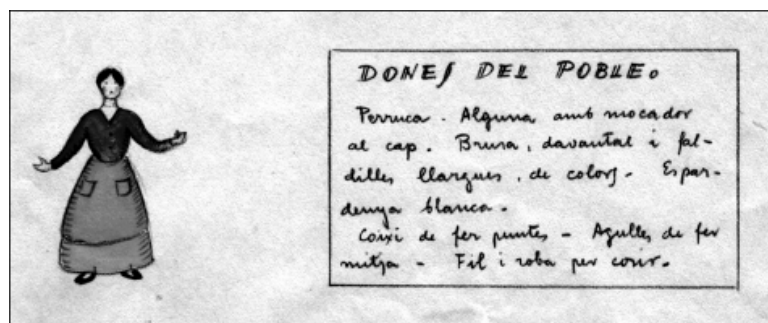 DONES DEL POBLE.
Perruca. Alguna amb mocador
al cap. Brusa, davantal i fal-
dilles llargues, de colors. Espar-
denya blanca.
Coixí de fer puntes - Agulles de fer
mitja - Fil i roba per cosir.